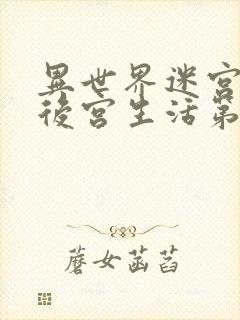 異世界迷宮
後宮生活第
蘑女菡萏